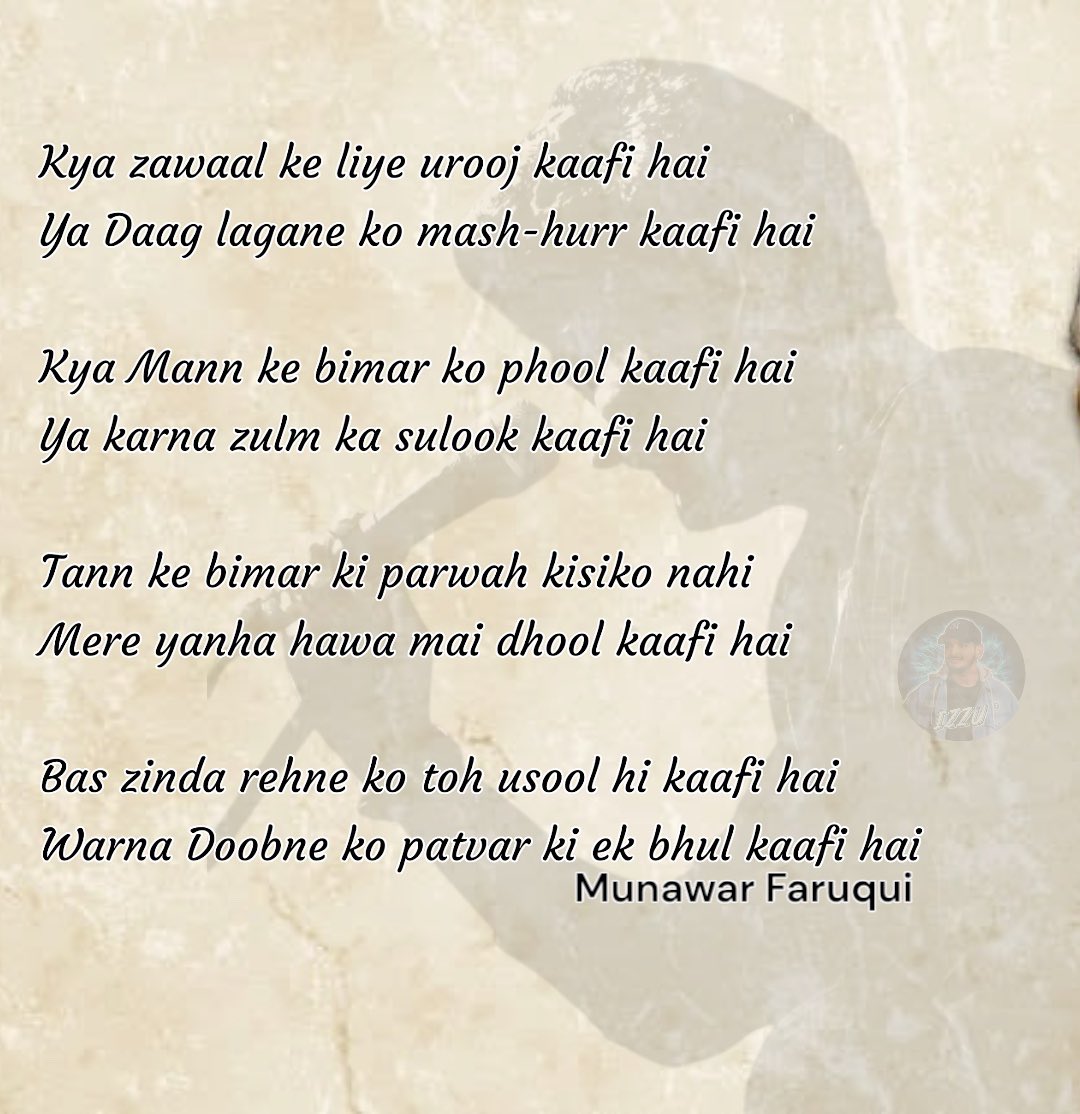 Kya zawaal ke liye urooj kaafi hai
Ya Daag lagane ko mash-hurr kaafi hai
Kya Mann ke bimar ko phool kaafi hai
Ya karna zulm ka sulook kaafi hai
Tann ke bimar ki parwah kisiko nahi
Mere yanha hawa mai dhool kaafi hai
Bas zinda rehne ko toh usool hi kaafi hai
Warna Doobne ko patvar ki ek bhul kaafi hai
Munawar Faruqui
IZZU